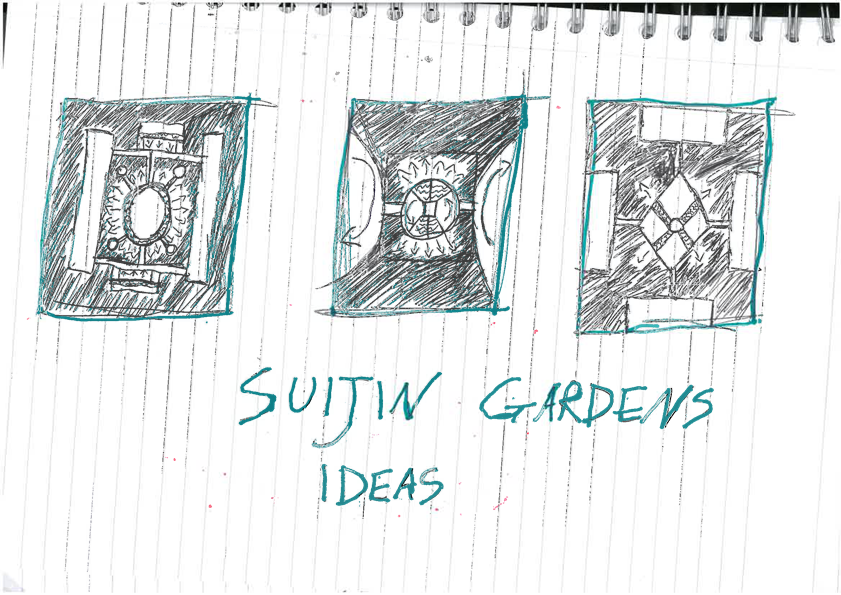 SUIJIN GARDENS
IDEAS